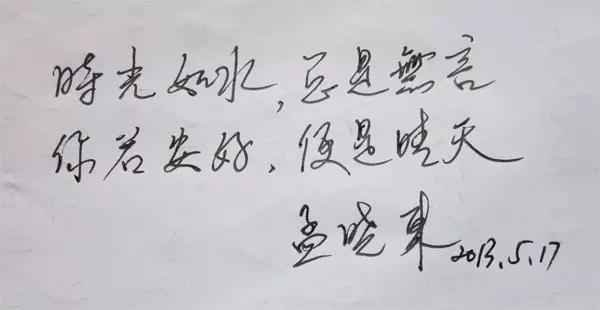 時光如水,总是無言
你若安好,便是晴天
孟晓东 2013.5.17